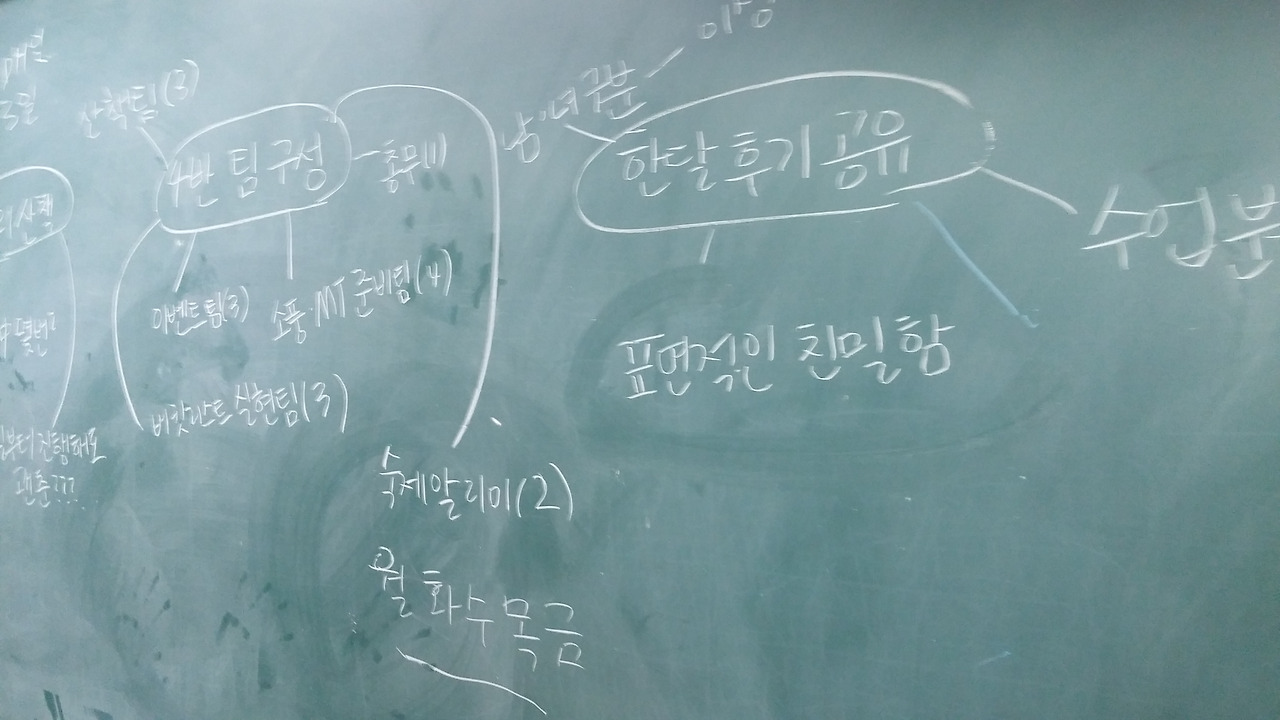 매일
산책팀(3)
4반 팀 구성
총무(1)
이벤트팀(3)
소풍·MT 준비팀(4)
버킷리스트 실현팀(3)
숙제알리미(2)
월화수목금
남·녀 구분
이성
한달 후기 공유
수업분
표면적인 친밀함
부터 진행해도
괜춘???